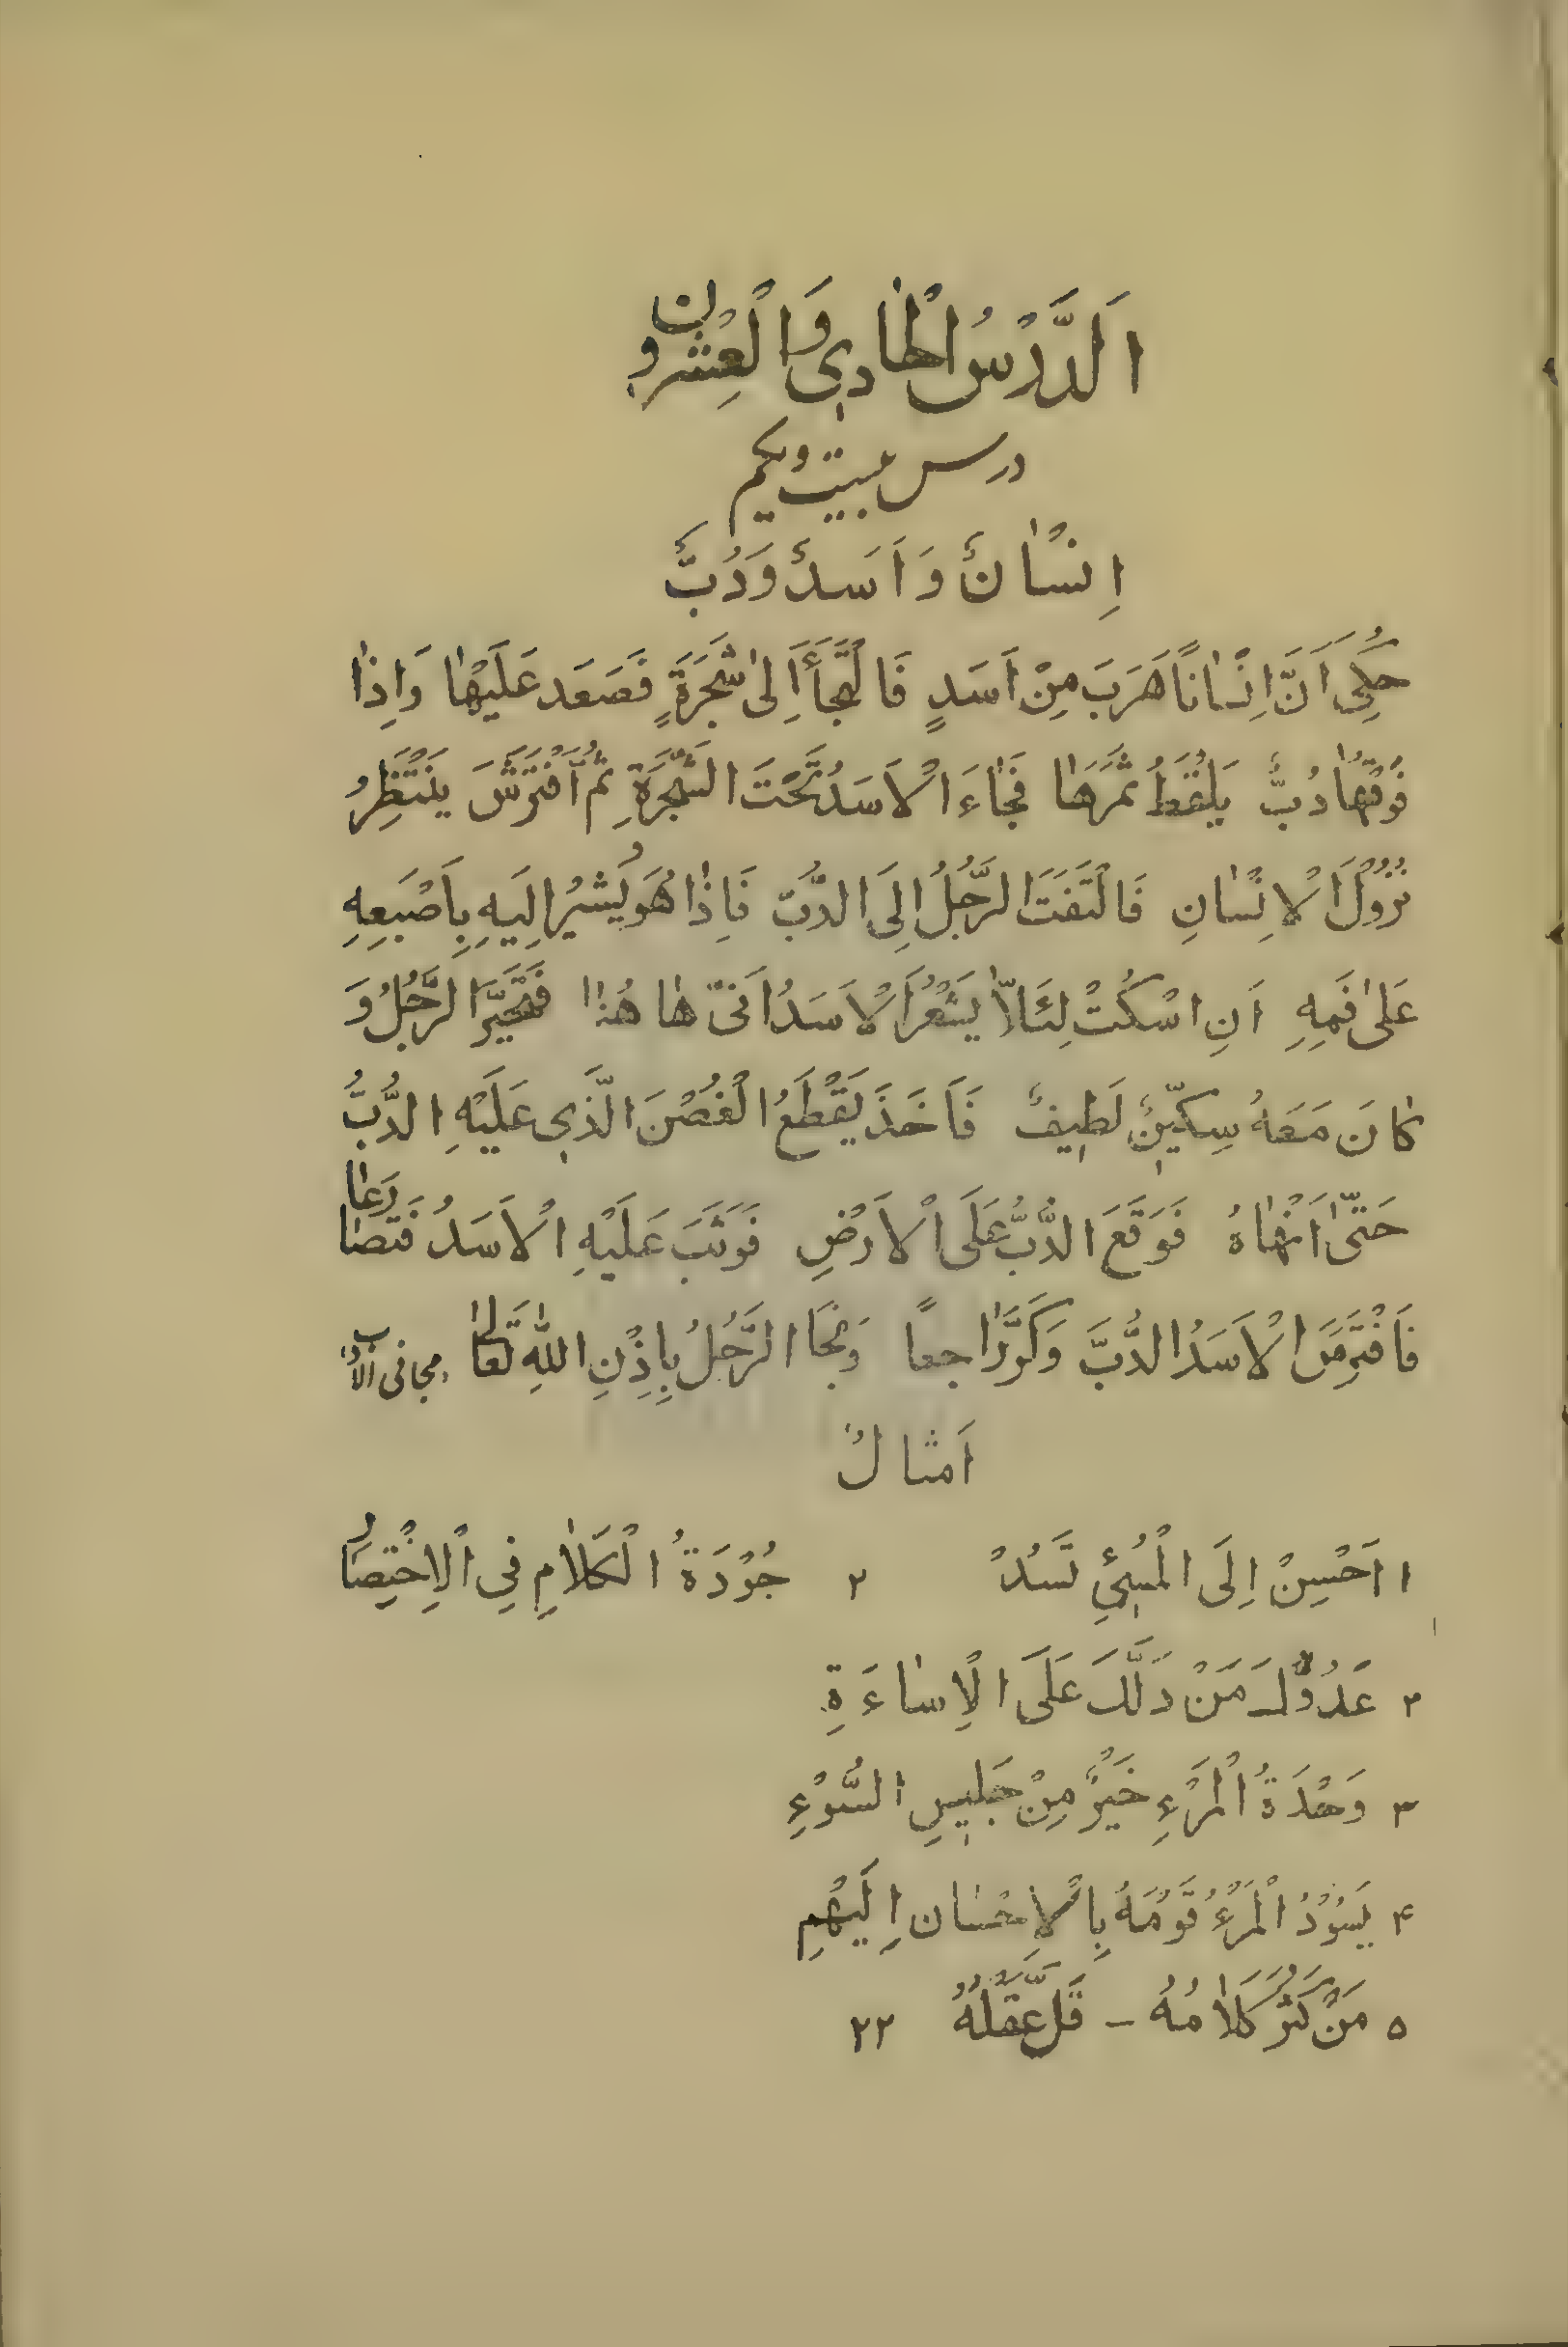 اَلدَّرْسُ الْحٰادِي وَالْعِشْرُونَ
درس بیست ویکم
اِنْسٰانٌ وَاَسَدٌ وَدُبٌّ
حُكِيَ اَنَّ اِنْسٰاناً هَرَبَ مِنْ اَسَدٍ فَالْتَجَأَ اِلىٰ شَجَرَةٍ فَصَعَدَ عَلَيْهٰا وَاِذٰا
فَوْقَهٰا دُبٌّ يَلْقُطُ ثَمَرَهٰا فَجٰاءَ الْاَسَدُ تَحْتَ الشَّجَرَةِ ثُمَّ افْتَرَشَ يَنْتَظِرُ
نُزُولَ الْاِنْسٰانِ فَالْتَفَتَ الرَّجُلُ اِلَى الدُّبِّ فَاِذٰا هُوَ يُشيرُ اِلَيهِ بِاَصْبَعِهِ
عَلىٰ فَمِهِ اَنِ اسْكُتْ لِئَلاّٰ يَشْعُرَ الْاَسَدُ اَنّى هٰا هُنٰا فَتَحَيَّرَ الرَّجُلُ وَ
كٰانَ مَعَهُ سِكّينٌ لَطيفٌ فَاَخَذَ يَقْطَعُ الْغُصْنَ الَّذي عَلَيْهِ الدُّبُّ
حَتّىٰ اَنْهٰاهُ فَوَقَعَ الدُّبُّ عَلَى الْاَرْضِ فَوَثَبَ عَلَيْهِ الْاَسَدُ فَتَصٰارَعٰا
فَافْتَرَسَ الْاَسَدُ الدُّبَّ وَكَرَّ رٰاجعاً وَنَجَا الرَّجُلُ بِاِذْنِ اللّٰهِ تَعٰالىٰ مجانی الادب
اَمثالٌ
١ اَحْسِنْ اِلَى الْمُسيءِ تَسُدْ ٢ جُوْدَةُ الْكَلاٰمِ فِي الْاِخْتِصٰارِ
٢ عَدُوُّكَ مَنْ دَلَّكَ عَلَى الْاِسٰاءَةِ
٣ وَحْدَةُ الْمَرْءِ خَيْرٌ مِنْ جَليسِ السُّوْءِ
۴ يَسُوْدُ الْمَرْءُ قَوْمَهُ بِالْاِحْسٰان اِلَيْهِمِ
۵ مَنْ كَثُرَ كَلاٰمُهُ - قَلَّ عَقْلُهُ ٢٢